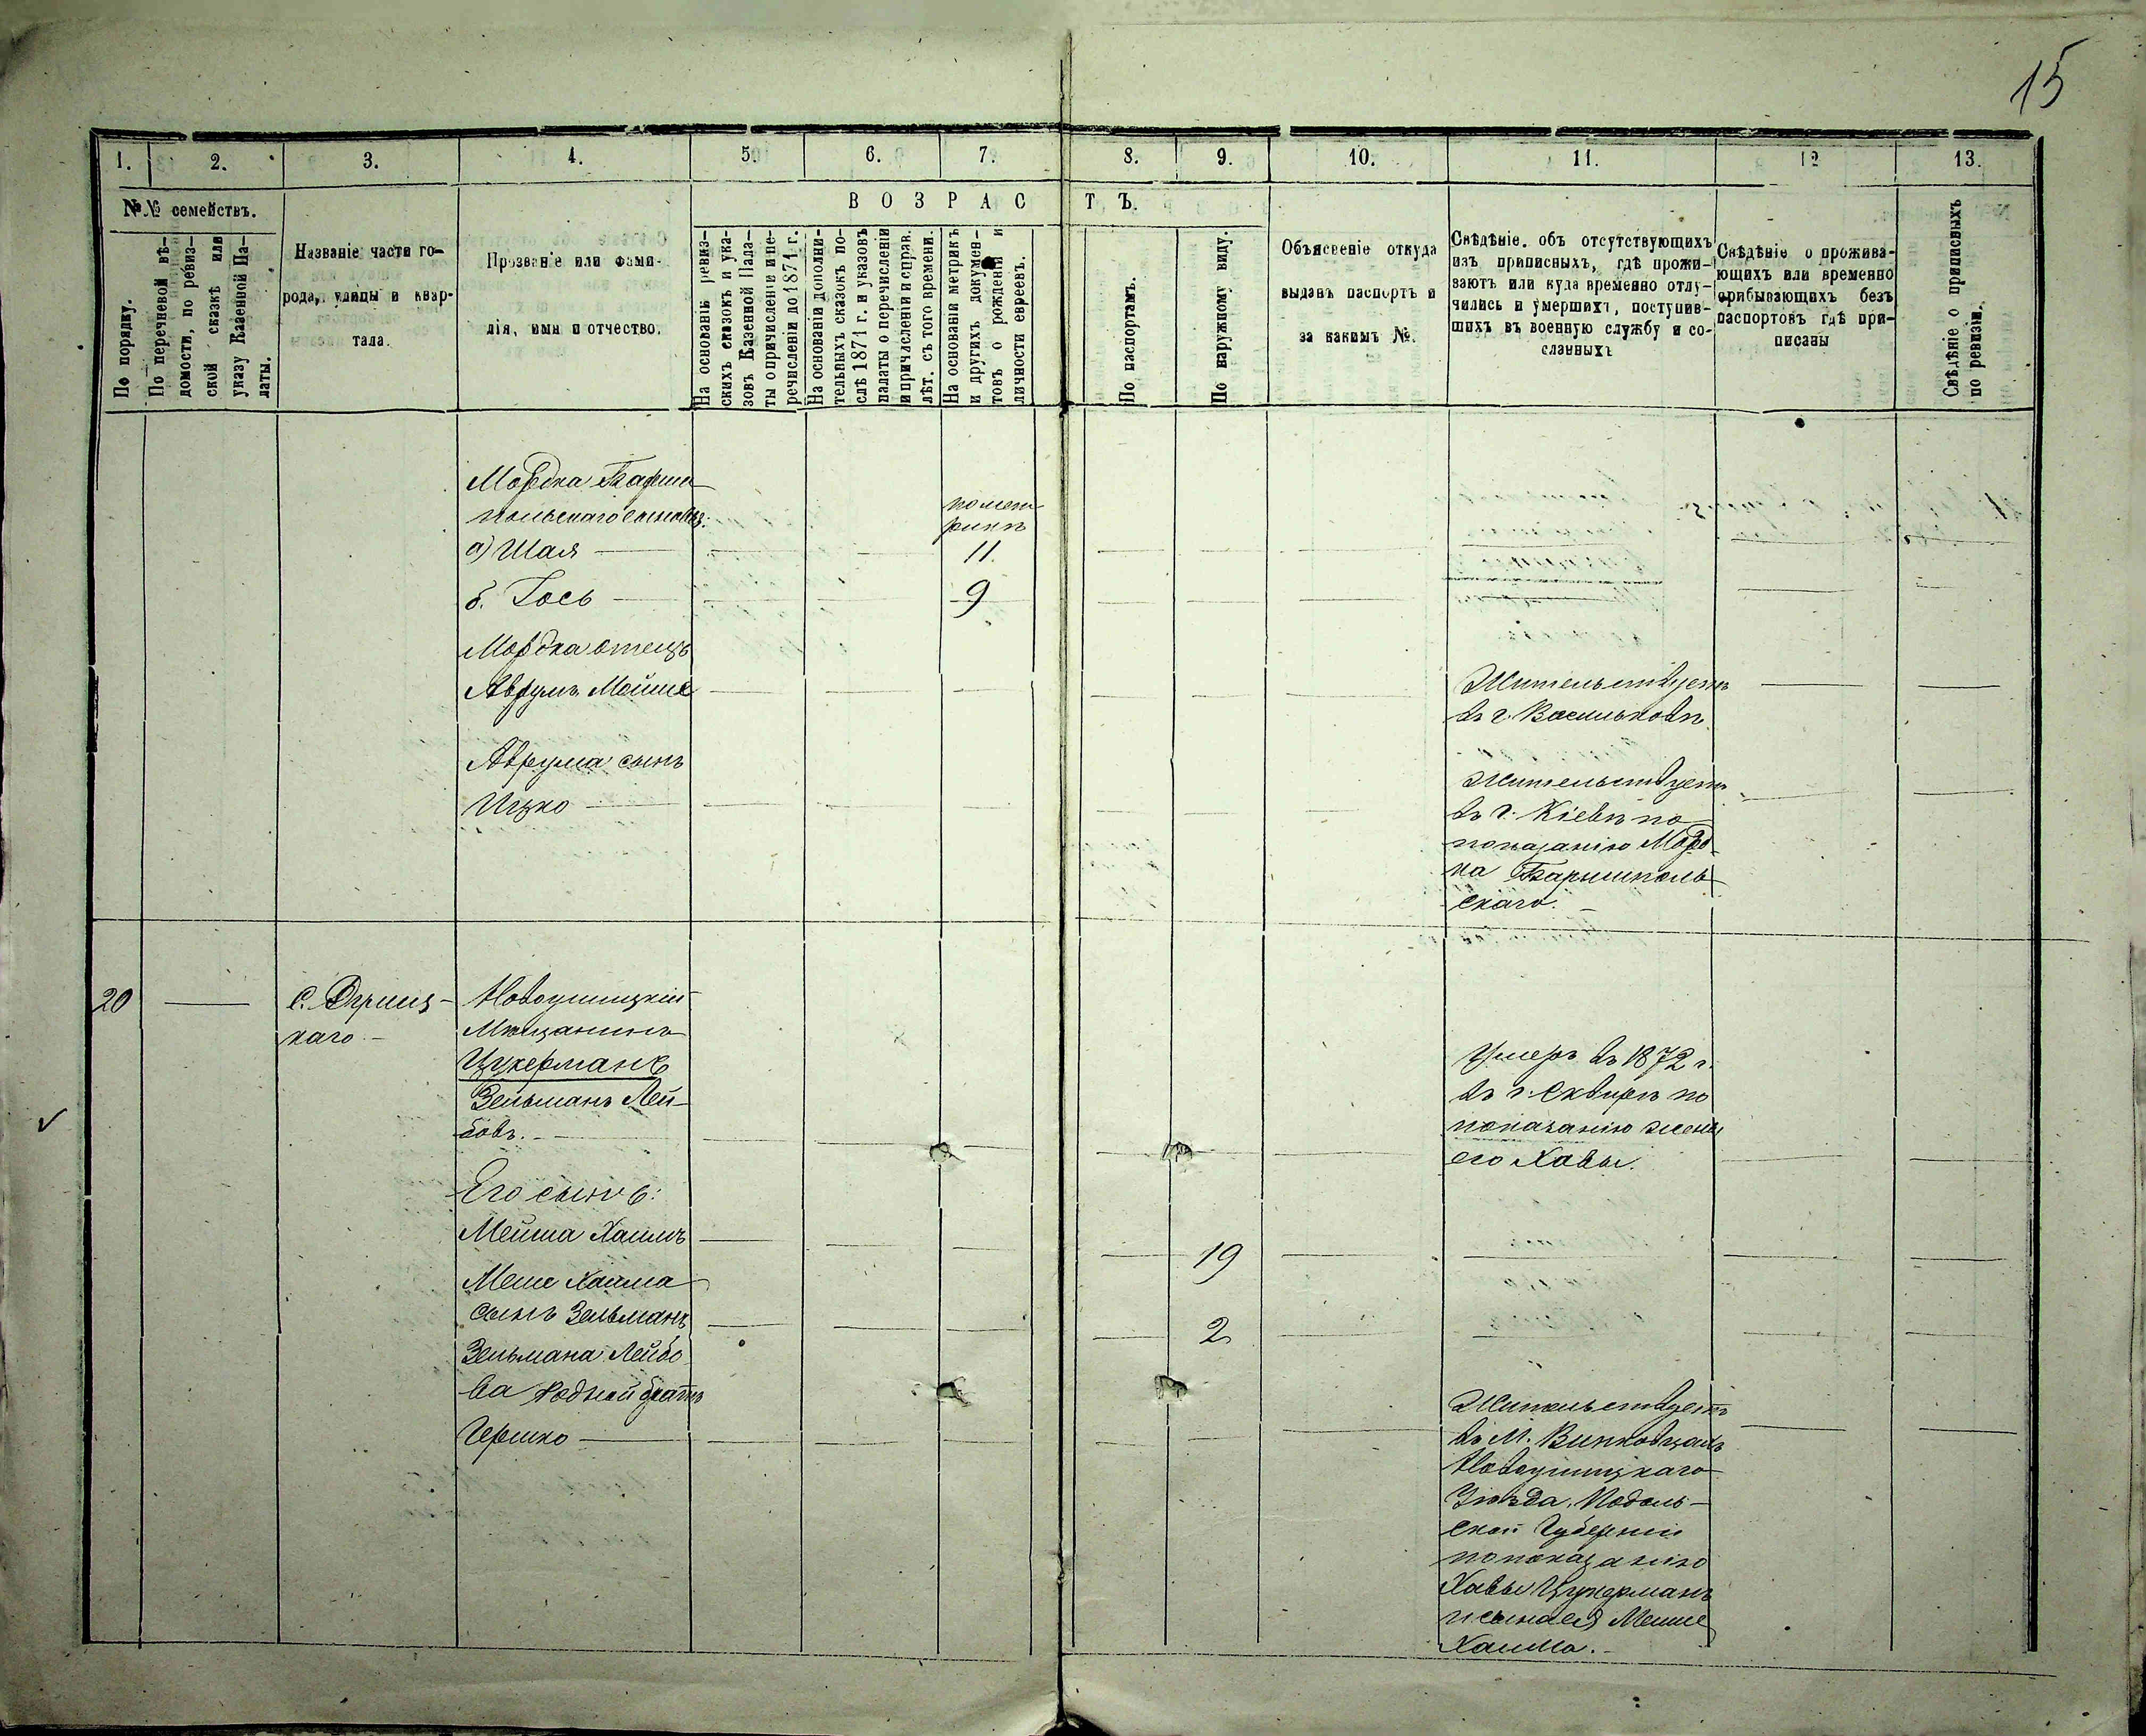 15
1. 2. 3. 4. 5. 6. 7. 8. 9. 10. 11. 12 13.
№№ семействъ.
В О З Р А С Т Ъ.
По порядку.
По перечневой вѣ-
домости, по ревиз-
ской сказкѣ или
указу Казенной Па-
латы.
Названіе части го-
рода, улицы и квар-
тала.
Прозваніе или фами-
лія, имя и отчество.
На основаніи ревиз-
скихъ сказокъ и ука-
зовъ Казенной Пала-
ты о причисленіи и пе-
речисленіи до 1871 г.
На основаніи дополни-
тельныхъ сказокъ по-
слѣ 1871 г. и указовъ
палаты о перечисленіи
и причисленіи и справ.
лѣт. съ того времени.
На основаніи метрикъ
и другихъ докумен-
товъ о рожденіи и
личности евреевъ.
По паспортамъ.
По наружному виду.
Объясненіе откуда
выданъ паспортъ и
за какимъ №.
Свѣдѣніе объ отсутствующихъ
изъ приписныхъ, гдѣ прожи-
ваютъ или куда временно отлу-
чились и умершихъ, поступив-
шихъ въ военную службу и со-
сланныхъ
Свѣдѣніе о прожива-
ющихъ или временно
прибывающихъ безъ
паспортовъ гдѣ при-
писаны
Свѣдѣніе о приписныхъ
по ревизіи.
Мордка Барыш
польскаго сыновья:
по мет
рикѣ
а) Шая 11.
б. Гось 9
Мордка отецъ
Аврумъ Мойше
Жительствуетъ
въ г. Васильковѣ
Аврума сынъ
Ицко
Жительствуетъ
въ г. Кіевѣ по
показанію Морд
ка Барышполь
скаго.
20
каго
Новоушицкій
Мѣщанинъ
Цукерманъ
Зельманъ Лей-
бовъ.
Умеръ въ 1872 г.
въ г. Сквирѣ по
показанію жены
его Хавы.
Его сынъ:
Мейша Хаимъ 19
Меше Хаима
сынъ Зельманъ 2
Зельмана Лейбо
ва родной братъ
Гершко
Жительствуетъ
въ М. Виньковцахъ
Новоушицкаго
Уѣзда, Подоль-
ской Губерніи
по показанію
Хавы Цукерманъ
и сына ея Мейше
Хаима.